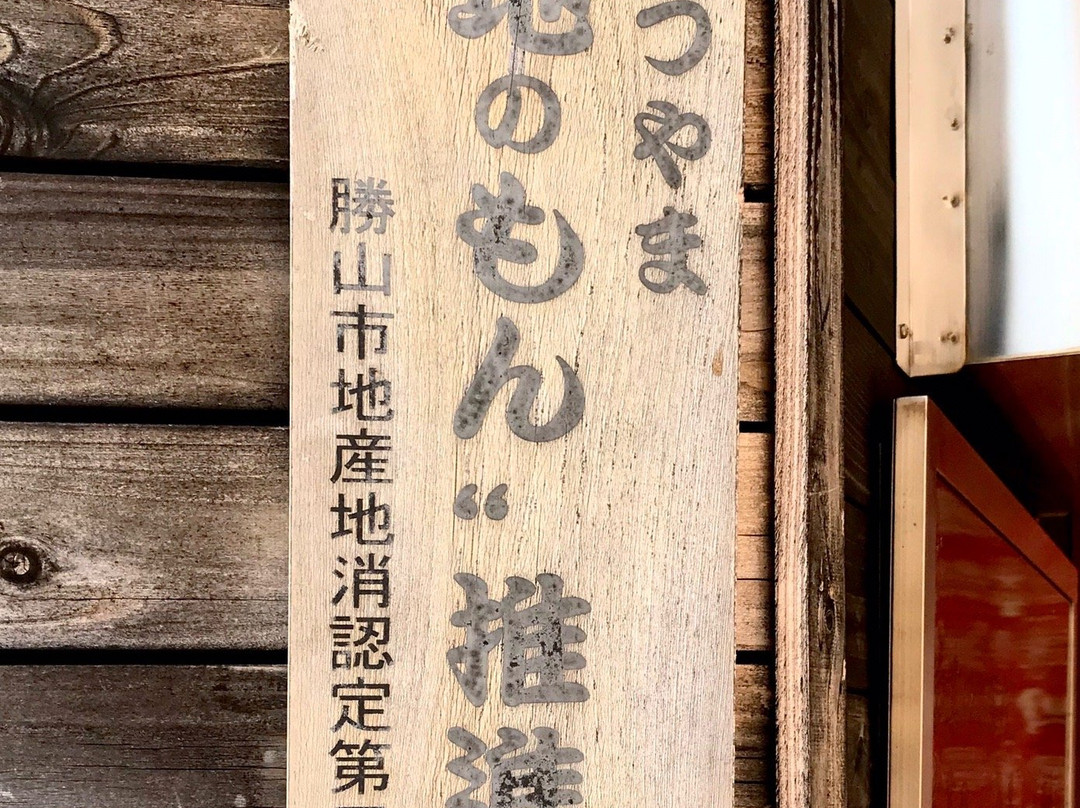 つやま
地のもん“推進
勝山市地産地消認定第